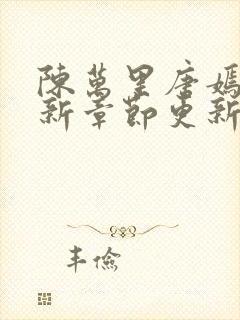 陳萬里唐嫣
新章節更新
丰儉